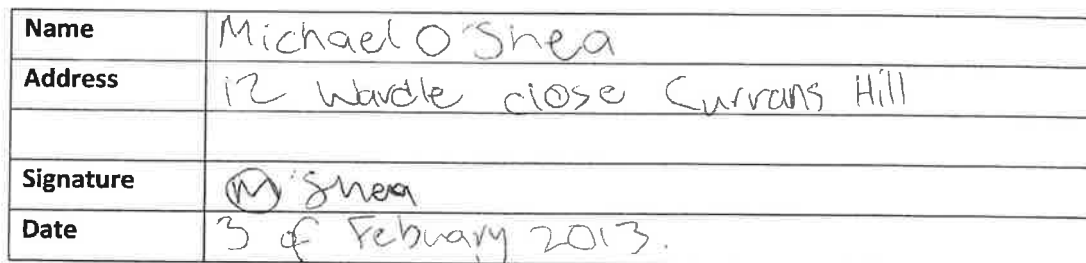 Name Michael O'Shea
Address 12 Wardle close Currans Hill
Signature M'Shea
Date 3 of Febuary 2013.